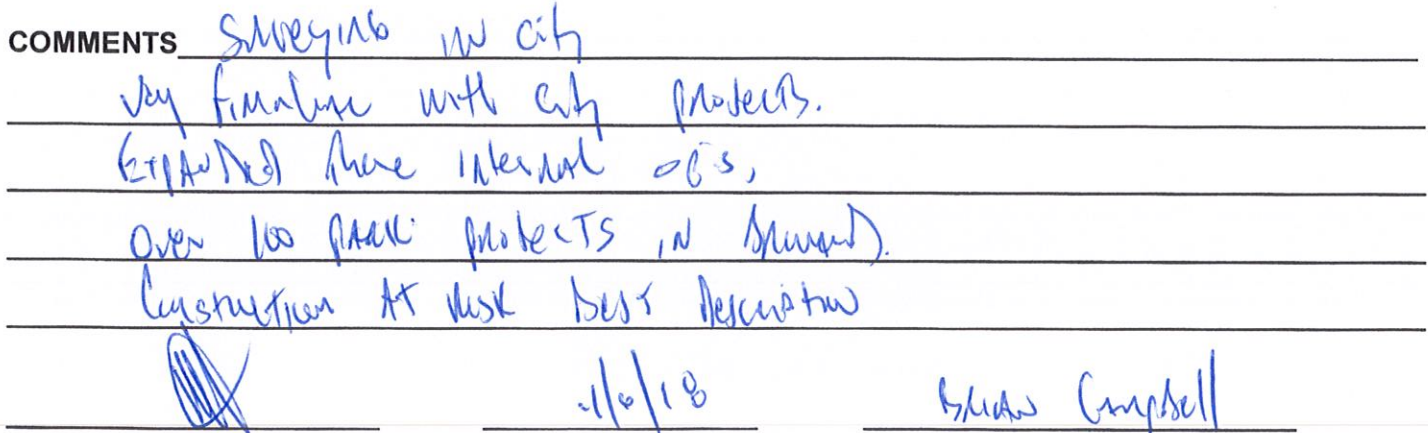 COMMENTS Surveying in City
Very Familiar with City projects.
Expanded there internal ops,
Over 100 PARK projects in
Construction At Risk Best Description
Brian Campbell